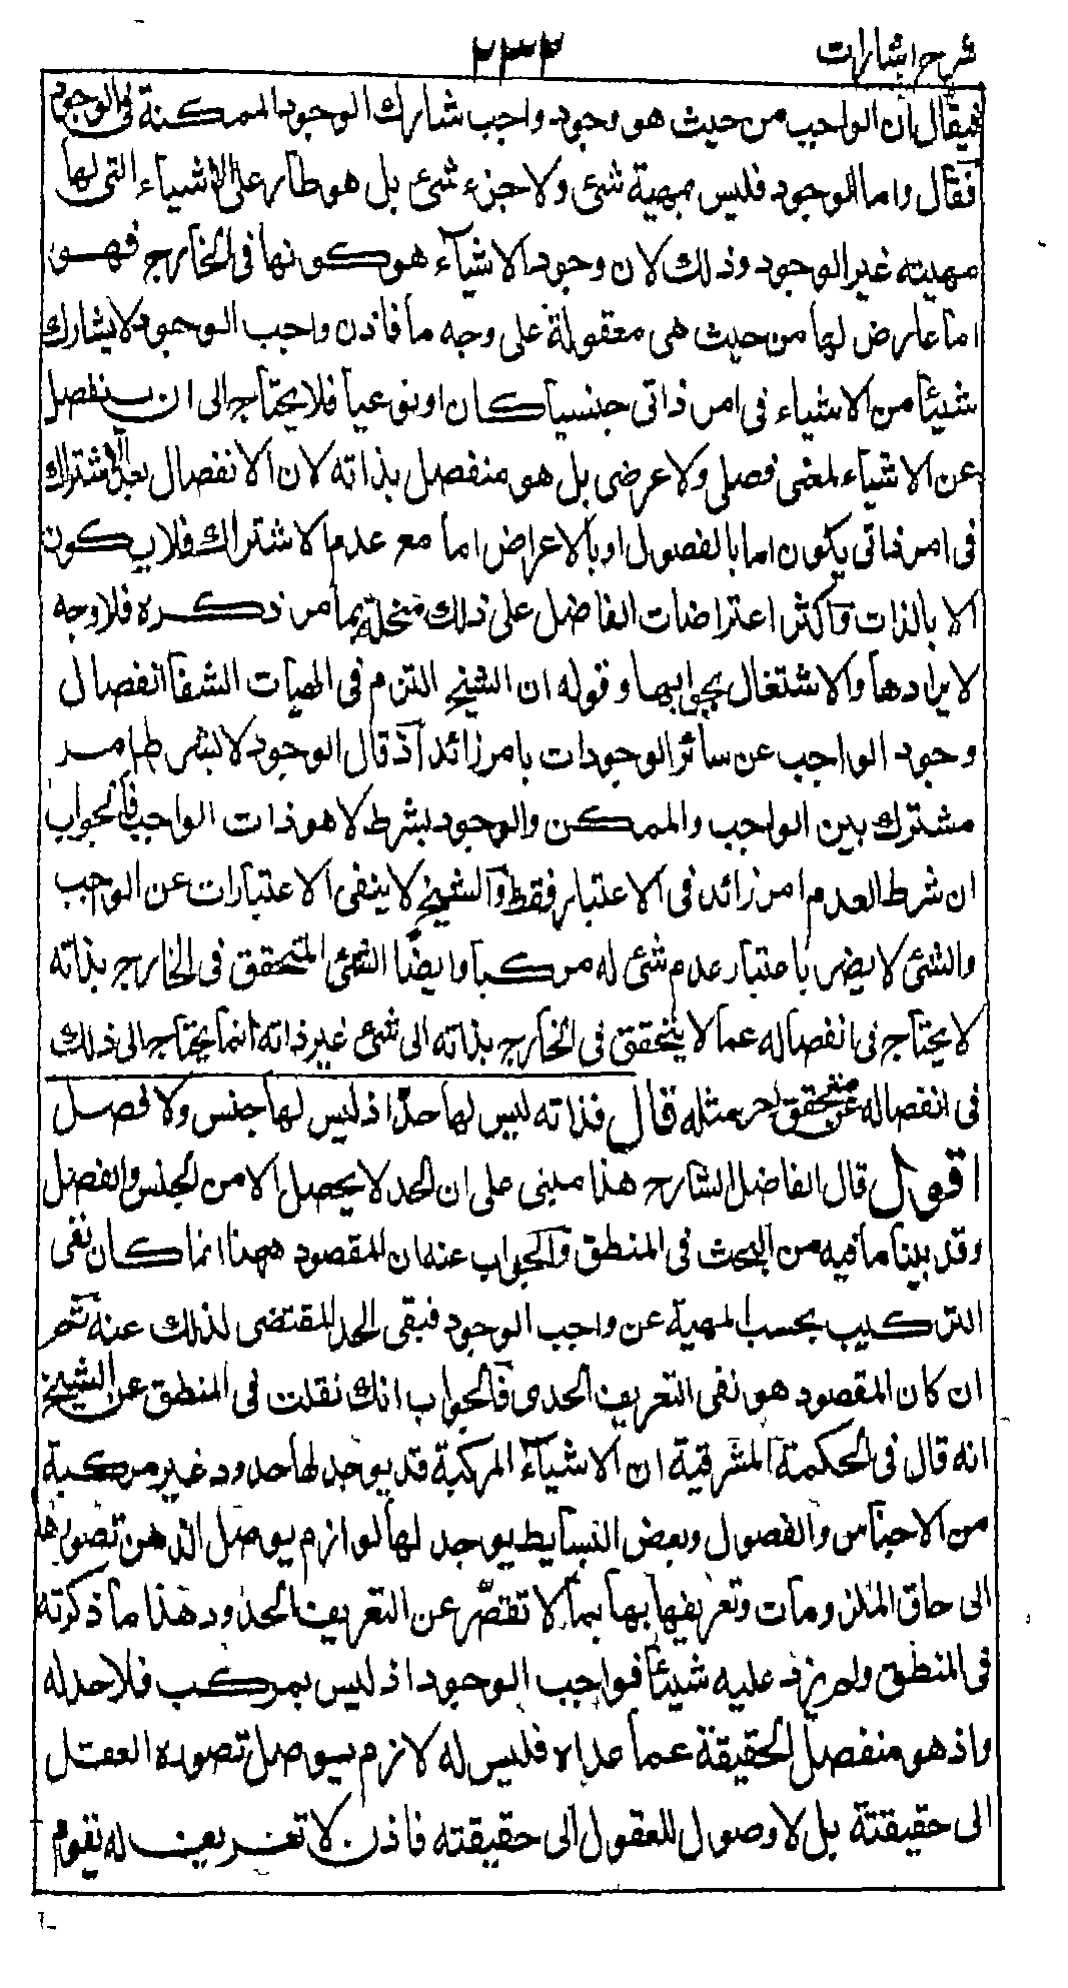 شرح اشارات
٢٣٢
فيقال ان الواجب من حيث هو وجود واجب شارك الوجود الممكنة فى الوجود
فقال واما الوجود فليس بمهية شئ ولا جزء شئ بل هو طار على الاشياء التى لها
مهيته غير الوجود وذلك لان وجود الاشياء هو كونها فى الخارج فهو
اما عارض لها من حيث هى معقولة على وجه ما فاذن واجب الوجود لا يشارك
شيئا من الاشياء فى امر ذاتى جنسيا كان او نوعيا فلا يحتاج الى ان ينفصل
عن الاشياء لمعنى فصلى ولا عرضى بل هو منفصل بذاته لان الانفصال بعد الاشتراك
فى امر ذاتى يكون اما بالفصول او بالاعراض اما مع عدم الاشتراك فلا يكون
الا بالذات واكثر اعتراضات الفاضل على ذلك منحلة بما مر ذكره فلا وجه
لايرادها والاشتغال بجوابها وقوله ان الشيخ التزم فى الهيات الشفا انفصال
وجود الواجب عن سائر الوجودات بامر زائد اذ قال الوجود لا بشرط امر
مشترك بين الواجب والممكن والوجود بشرط لا هو ذات الواجب فالجواب
ان شرط العدم امر زائد فى الاعتبار فقط والشيخ لا ينفى الاعتبارات عن الوجب
والشئ لا يضر باعتبار عدم شئ له مركبا وايضا الشئ المتحقق فى الخارج بذاته
لا يحتاج فى انفصاله عما لا يتحقق فى الخارج بذاته الى شئ غير ذاته انما يحتاج الى ذلك
فى انفصاله عن متحقق اخر مثله قال فذاته ليس لها حد اذ ليس لها جنس ولا فصل
اقول قال الفاضل الشارح هذا مبنى على ان الحد لا يحصل الا من الجنس والفصل
وقد بينا ما فيه من البحث فى المنطق والجواب عنه ان المقصود ههنا انما كان نفى
التركيب بحسب المهية عن واجب الوجود فبقى الحد المقتضى لذلك عنه ثم
ان كان المقصود هو نفى التعريف الحدى فالجواب انك نقلت فى المنطق عن الشيخ
انه قال فى الحكمة المشرقية ان الاشياء المركبة قد يوجد لها حدود غير مركبة
من الاجناس والفصول وبعض البسايط يوجد لها لوازم يوصل الذهن تصورها
الى حاق الملزومات وتعريفها بها بما لا تقصر عن التعريف الحدود هذا ما ذكرته
فى المنطق ولم يزد عليه شيئا فواجب الوجود اذ ليس بمركب فلا حد له
واذ هو منفصل الحقيقة عما عداه فليس له لازم يوصل تصوره العقل
الى حقيقتة بل لا وصول للعقول الى حقيقته فاذن لا تعريف له يقوم